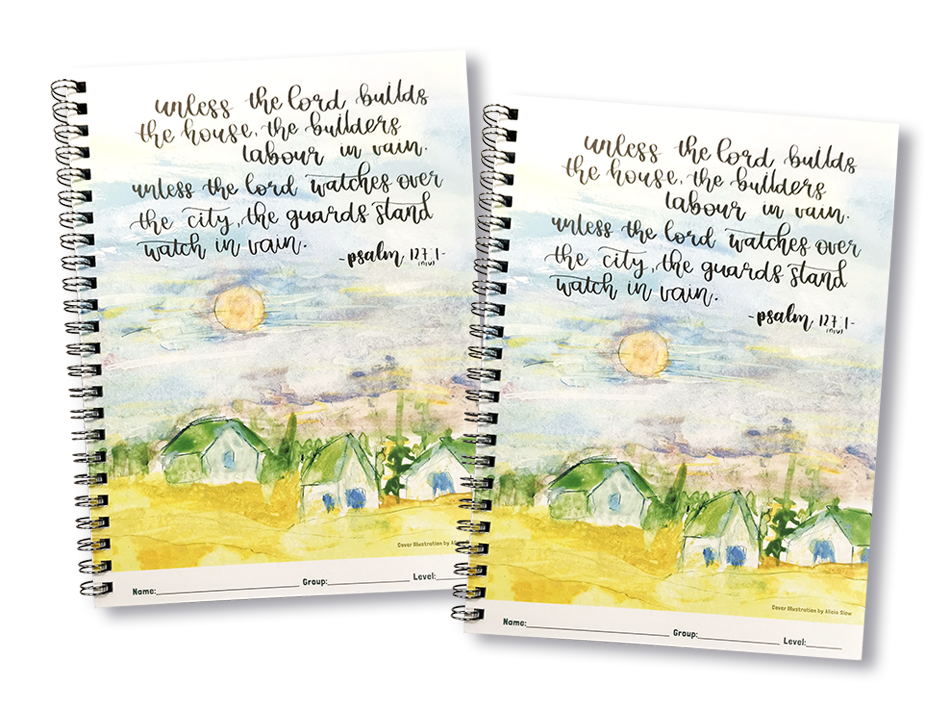 unless the lord builds
the house, the builders
labour in vain.
unless the lord watches over
the city, the guards stand
watch in vain.
-psalm 127:1-
(niv)
Cover Illustration by Al
Name: Group: Level:
unless the lord builds
the house, the builders
labour in vain.
unless the lord watches over
the city, the guards stand
watch in vain.
-psalm 127:1-
(niv)
Cover Illustration by Alicia Siow
Name: Group: Level: